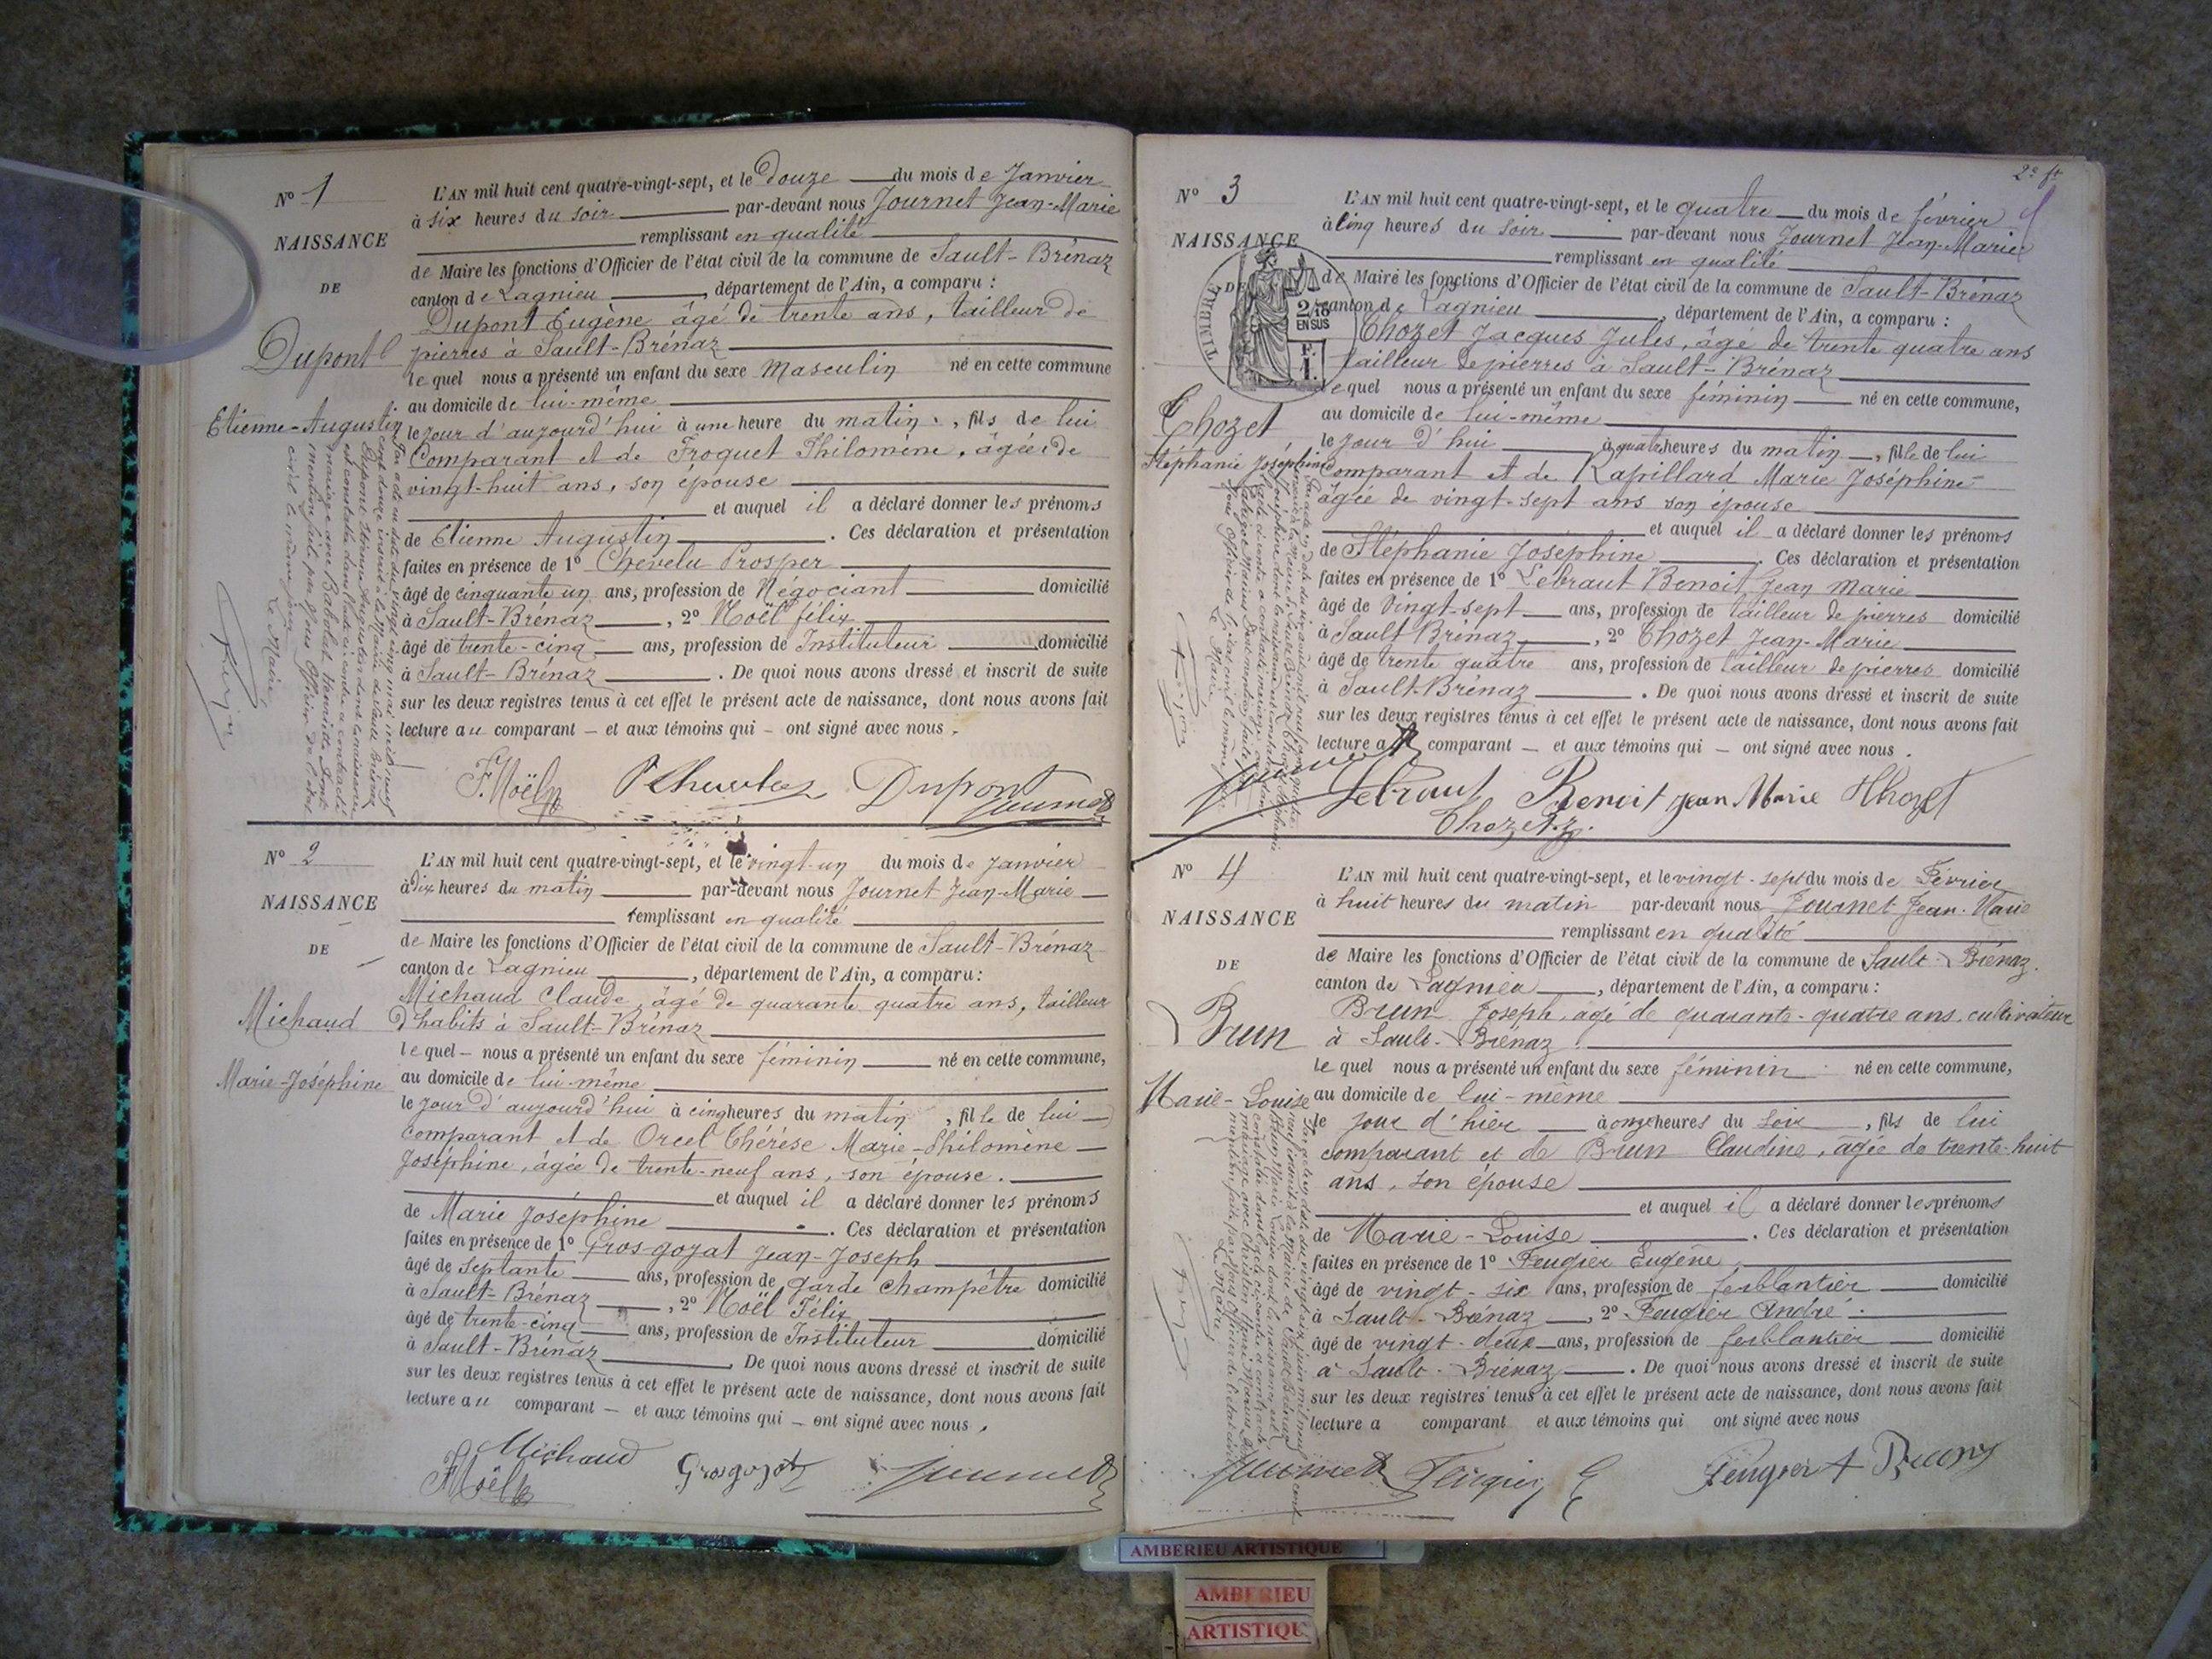 N° 1
NAISSANCE
DE
Dupont
Etienne-Augustin
L'AN mil huit cent quatre-vingt-sept, et le douze du mois de Janvier
à six heures du soir par-devant nous Journet Jean-Marie
remplissant en qualité
de Maire les fonctions d'Officier de l'état civil de la commune de Sault-Brénaz
canton de Lagnieu, département de l'Ain, a comparu :
Dupont Eugène âgé de trente ans, tailleur de
pierres à Sault-Brénaz
lequel nous a présenté un enfant du sexe masculin né en cette commune
au domicile de lui-même
le jour d'aujourd'hui à une heure du matin, fils de lui
Comparant et de Froquet Philomène, âgée de
vingt-huit ans, son épouse
et auquel il a déclaré donner les prénoms
de Etienne Augustin. Ces déclaration et présentation
faites en présence de 1° Chevelu Prosper
âgé de cinquante un ans, profession de Négociant domicilié
à Sault-Brénaz, 2° Noël félix
âgé de trente-cinq ans, profession de Instituteur domicilié
à Sault-Brénaz. De quoi nous avons dressé et inscrit de suite
sur les deux registres tenus à cet effet le présent acte de naissance, dont nous avons fait
lecture au comparant — et aux témoins qui — ont signé avec nous.
F. Noël Dupont Journet
N° 2
NAISSANCE
DE
Michaud
Marie-Joséphine
L'AN mil huit cent quatre-vingt-sept, et le vingt-un du mois de Janvier
à dix heures du matin par-devant nous Journet Jean-Marie
remplissant en qualité
de Maire les fonctions d'Officier de l'état civil de la commune de Sault-Brénaz
canton de Lagnieu, département de l'Ain, a comparu :
Michaud Claude, âgé de quarante quatre ans, tailleur
d'habits à Sault-Brénaz
lequel — nous a présenté un enfant du sexe féminin né en cette commune,
au domicile de lui-même
le jour d'aujourd'hui à cinq heures du matin, fille de lui
comparant et de Orcel Thérèse Marie-Philomène
Joséphine, âgée de trente-neuf ans, son épouse.
et auquel il a déclaré donner les prénoms
de Marie Joséphine. Ces déclaration et présentation
faites en présence de 1° Gros-gojat Jean-Joseph
âgé de septante ans, profession de garde champêtre domicilié
à Sault-Brénaz, 2° Noël Félix
âgé de trente-cinq ans, profession de Instituteur domicilié
à Sault-Brénaz. De quoi nous avons dressé et inscrit de suite
sur les deux registres tenus à cet effet le présent acte de naissance, dont nous avons fait
lecture au comparant — et aux témoins qui — ont signé avec nous.
Michaud
F. Noël Grosgojat Journet
2e ft
N° 3
NAISSANCE
DE
TIMBRE
2/10
EN SUS
F.
1.
Chozet
Stéphanie Joséphine
L'AN mil huit cent quatre-vingt-sept, et le quatre du mois de février
à cinq heures du soir par-devant nous Journet Jean-Marie
remplissant en qualité
de Maire les fonctions d'Officier de l'état civil de la commune de Sault-Brénaz
canton de Lagnieu, département de l'Ain, a comparu :
Chozet Jacques Jules, âgé de trente quatre ans
tailleur de pierres à Sault-Brénaz
lequel nous a présenté un enfant du sexe féminin né en cette commune,
au domicile de lui-même
le jour d'hui à quatre heures du matin, fille de lui
comparant et de Rapillard Marie Joséphine
âgée de vingt-sept ans son épouse
et auquel il a déclaré donner les prénoms
de Stéphanie Joséphine. Ces déclaration et présentation
faites en présence de 1° Lebraut Benoit Jean Marie
âgé de vingt-sept ans, profession de tailleur de pierres domicilié
à Sault Brénaz, 2° Chozet Jean-Marie
âgé de trente quatre ans, profession de tailleur de pierres domicilié
à Sault-Brénaz. De quoi nous avons dressé et inscrit de suite
sur les deux registres tenus à cet effet le présent acte de naissance, dont nous avons fait
lecture au comparant — et aux témoins qui — ont signé avec nous.
Journet Lebraut Benoit Jean Marie Chozet
Chozet J.
N° 4
NAISSANCE
DE
Brun
Marie-Louise
L'AN mil huit cent quatre-vingt-sept, et le vingt-sept du mois de Février
à huit heures du matin par-devant nous Journet Jean-Marie
remplissant en qualité
de Maire les fonctions d'Officier de l'état civil de la commune de Sault-Brénaz.
canton de Lagnieu, département de l'Ain, a comparu :
Brun Joseph, âgé de quarante-quatre ans, cultivateur
à Sault-Brénaz
lequel nous a présenté un enfant du sexe féminin né en cette commune,
au domicile de lui-même
le jour d'hier à onze heures du soir, fils de lui
comparant et de Brun Claudine, âgée de trente-huit
ans, son épouse
et auquel il a déclaré donner les prénoms
de Marie-Louise. Ces déclaration et présentation
faites en présence de 1° Feugier Eugène
âgé de vingt-six ans, profession de ferblantier domicilié
à Sault-Brénaz, 2° Feugier André
âgé de vingt-deux ans, profession de ferblantier domicilié
à Sault-Brénaz. De quoi nous avons dressé et inscrit de suite
sur les deux registres tenus à cet effet le présent acte de naissance, dont nous avons fait
lecture a comparant et aux témoins qui ont signé avec nous
Journet Feugier E Feugier A
AMBERIEU ARTISTIQUE
AMBERIEU
ARTISTIQU